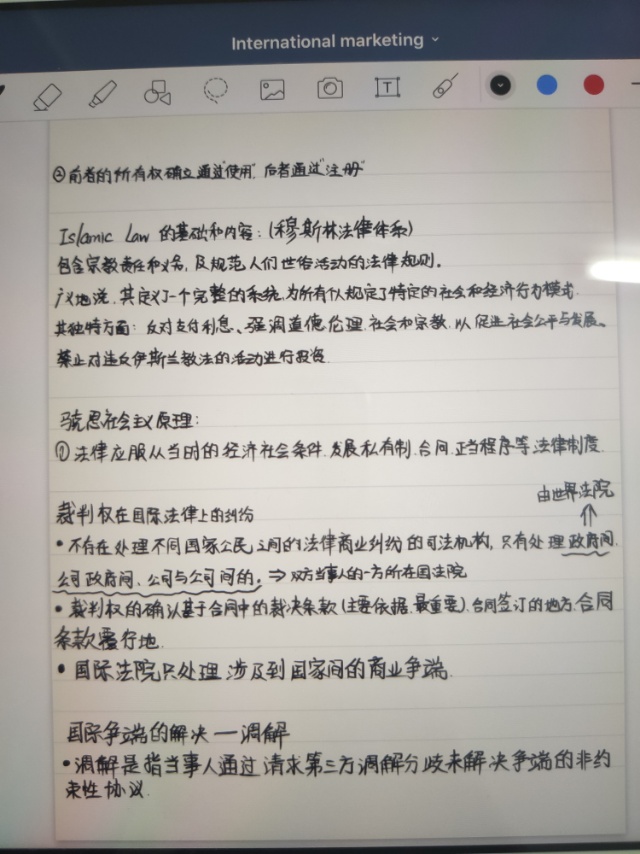 International marketing
T
②前者的所有权确立通过"使用",后者通过"注册"
Islamic Law 的基础和内容:(穆斯林法律体系)
包含宗教责任和义务,及规范人们世俗活动的法律规则。
广义地说,其定义了一个完整的系统,为所有人规定了特定的社会和经济行为模式.
其独特方面:反对支付利息、强调道德伦理.社会和宗教,以促进社会公平与发展、
禁止对违反伊斯兰教法的活动进行投资.
马克思社会主义原理:
①法律应服从当时的经济社会条件.发展私有制.合同.正当程序等法律制度.
由世界法院
⇑
裁判权在国际法律上的纠纷
•不存在处理不同国家公民之间的法律商业纠纷的司法机构,只有处理政府间.
公司政府间、公司与公司间的。⇒双方当事人的一方所在国法院
•裁判权的确认基于合同中的裁决条款(主要依据.最重要).合同签订的地方.合同
条款覆行地.
•国际法院只处理涉及到国家间的商业争端.
国际争端的解决—调解
•调解是指当事人通过请求第三方调解分歧来解决争端的非约
束性协议.